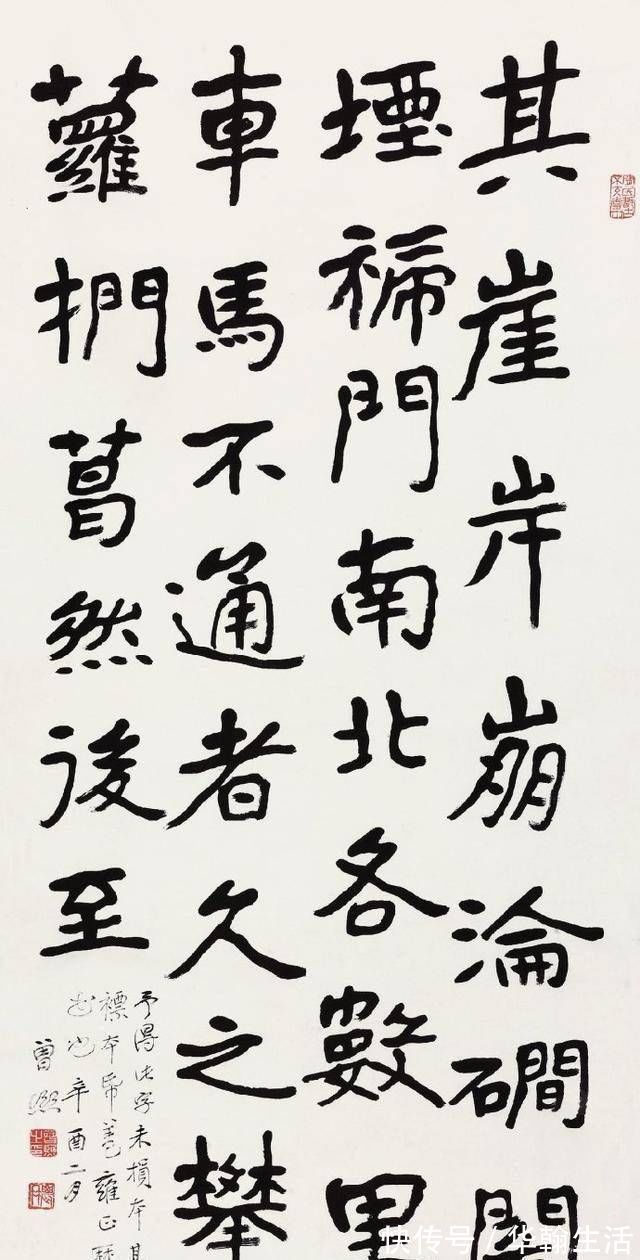 其崖岸崩淪磵
堙禘門南北各數里
車馬不通者久之攀
蘿捫葛然後至
予得此字未損本其
褾本帋蓋雍正
拓也辛酉二月
曾熙
快传号 / 华翰生活